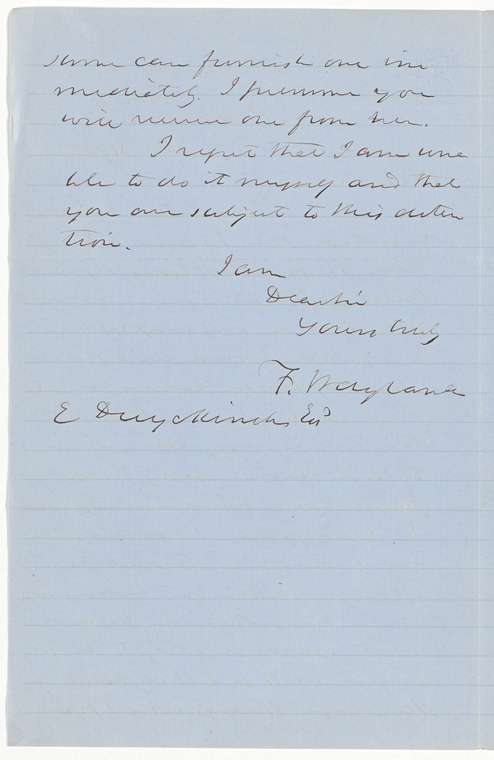 same can furnish one im
mediately. I presume you
will receive one from her.
I regret that I am una
ble to do it myself and that
you are subject to this deten
tion.
I am
Dear Sir
Yours truly
F. Wayland
E Duyckinck Esq